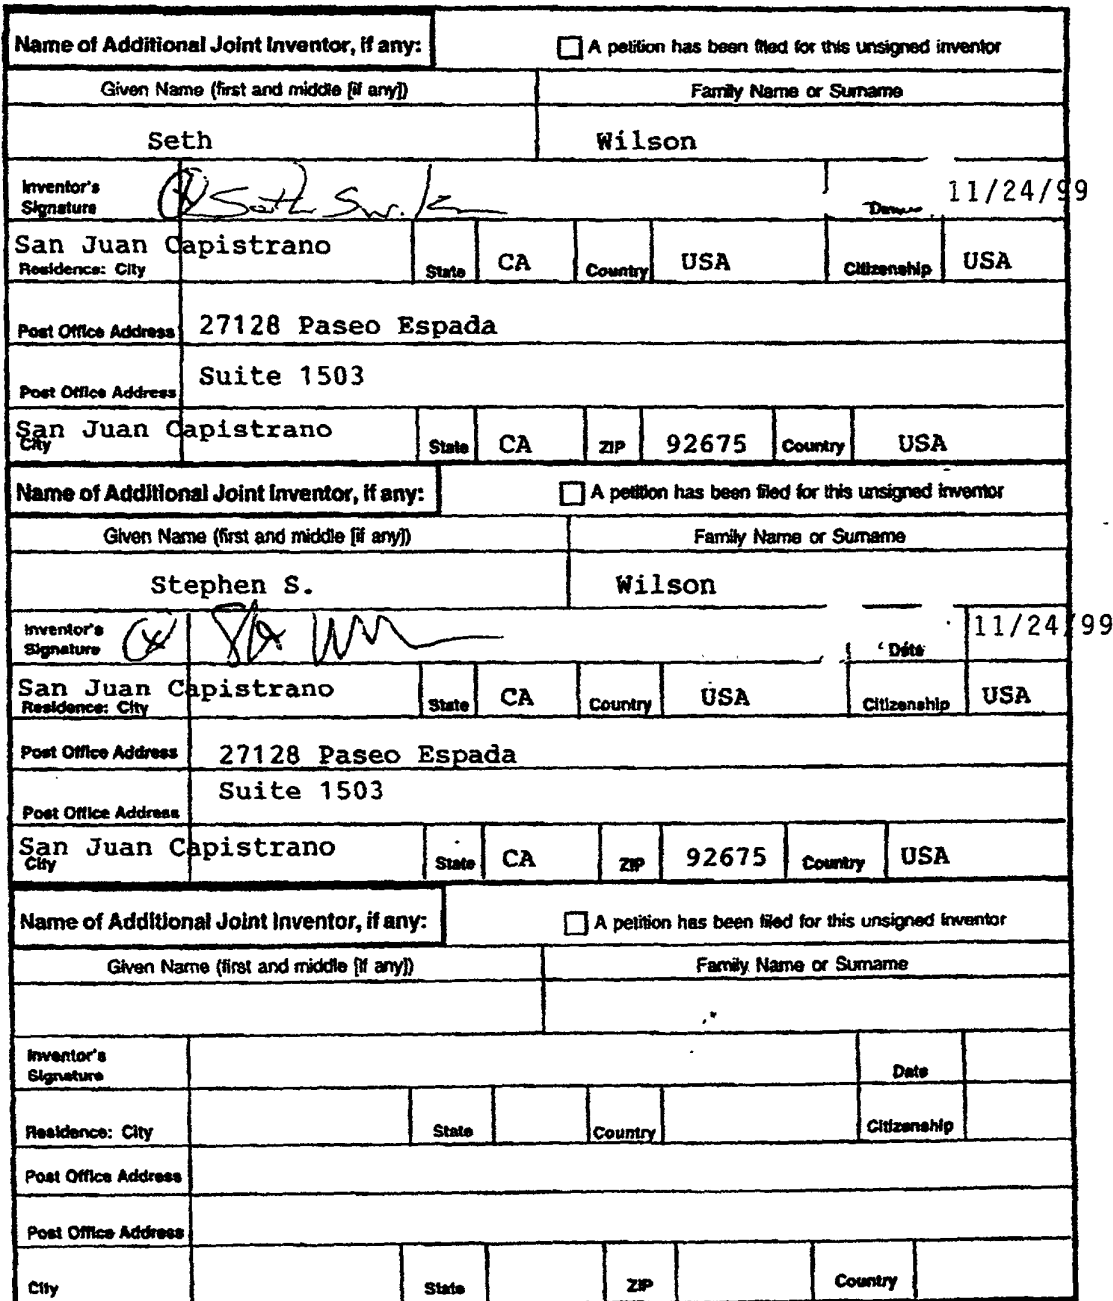 Name of Additional Joint Inventor, if any: A petition has been filed for this unsigned inventor
Given Name (first and middle [if any]) Family Name or Surname
Seth Wilson
Inventor's Signature 11/24/99
San Juan Capistrano
Residence: City State CA Country USA Citizenship USA
Post Office Address 27128 Paseo Espada
Post Office Address Suite 1503
San Juan Capistrano
City State CA ZIP 92675 Country USA
Name of Additional Joint Inventor, if any: A petition has been filed for this unsigned inventor
Given Name (first and middle [if any]) Family Name or Surname
Stephen S. Wilson
Inventor's Signature Date 11/24/99
San Juan Capistrano
Residence: City State CA Country USA Citizenship USA
Post Office Address 27128 Paseo Espada
Suite 1503
Post Office Address
San Juan Capistrano
City State CA ZIP 92675 Country USA
Name of Additional Joint Inventor, if any: A petition has been filed for this unsigned inventor
Given Name (first and middle [if any]) Family Name or Surname
Inventor's Signature Date
Residence: City State Country Citizenship
Post Office Address
Post Office Address
City State ZIP Country